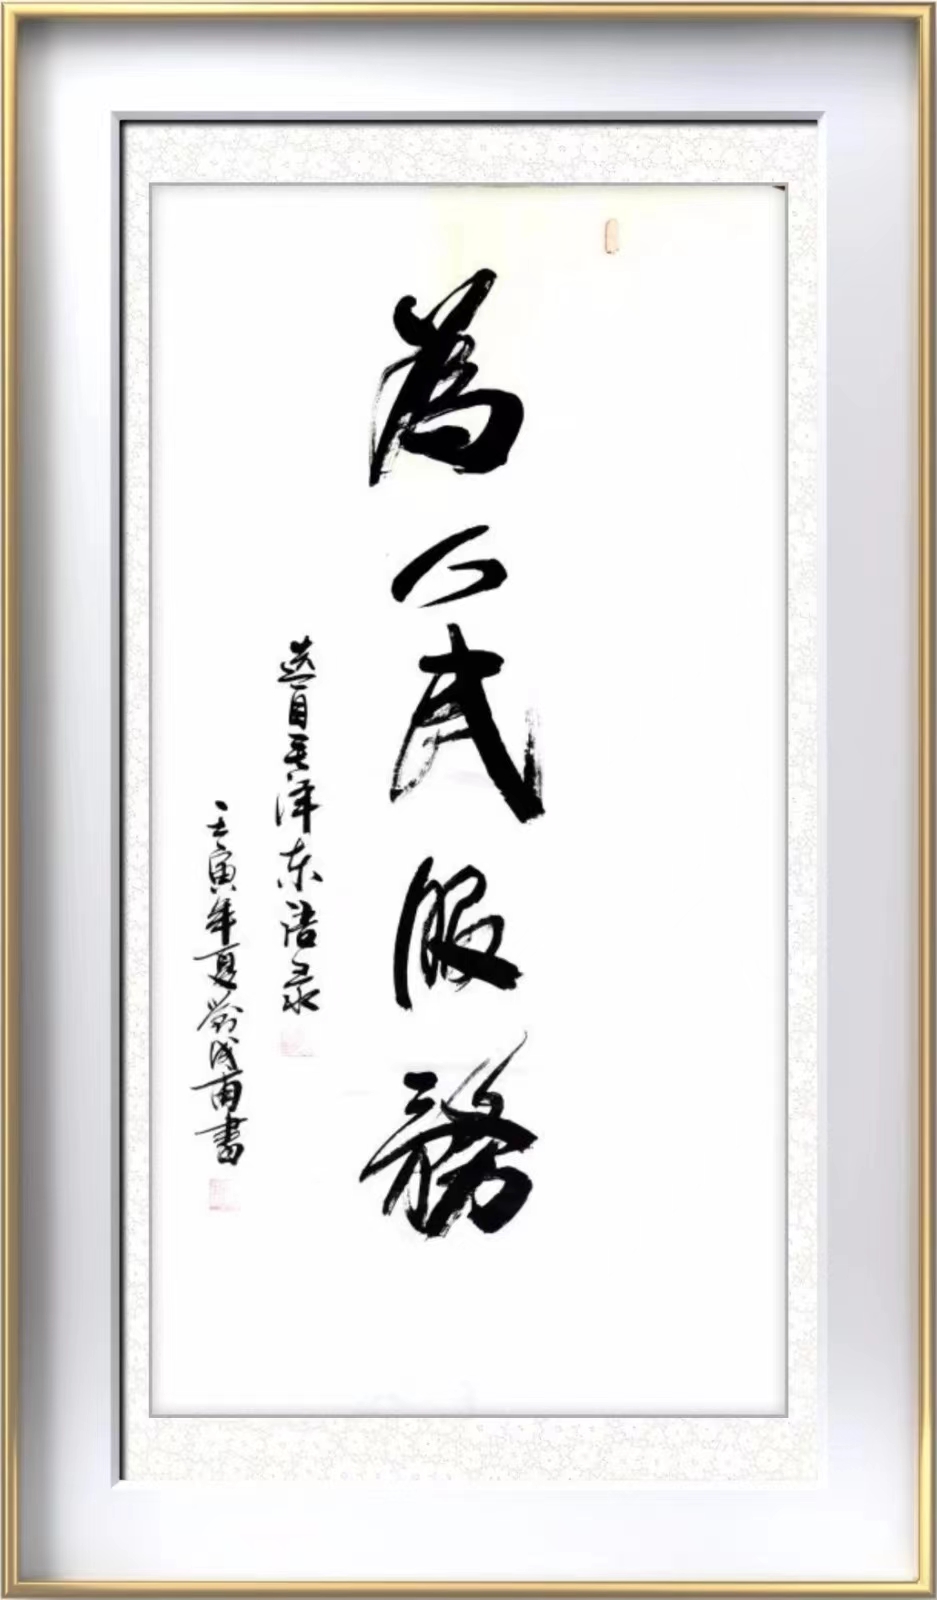 為人民服務
选自毛泽东语录
壬寅年夏書